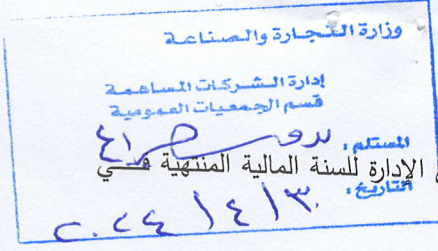 وزارة التجارة والصناعة
إدارة الشركات المساهمة
قسم الجمعيات العمومية
المستلم :
الإدارة للسنة المالية المنتهية فـــي
التاريخ : ٢٠٢٤/٤/٣٠